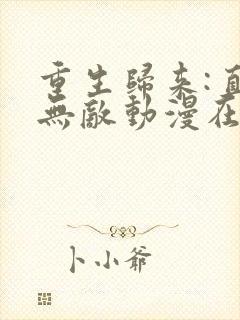 重生歸來:直
無敵動漫在
卜小爺